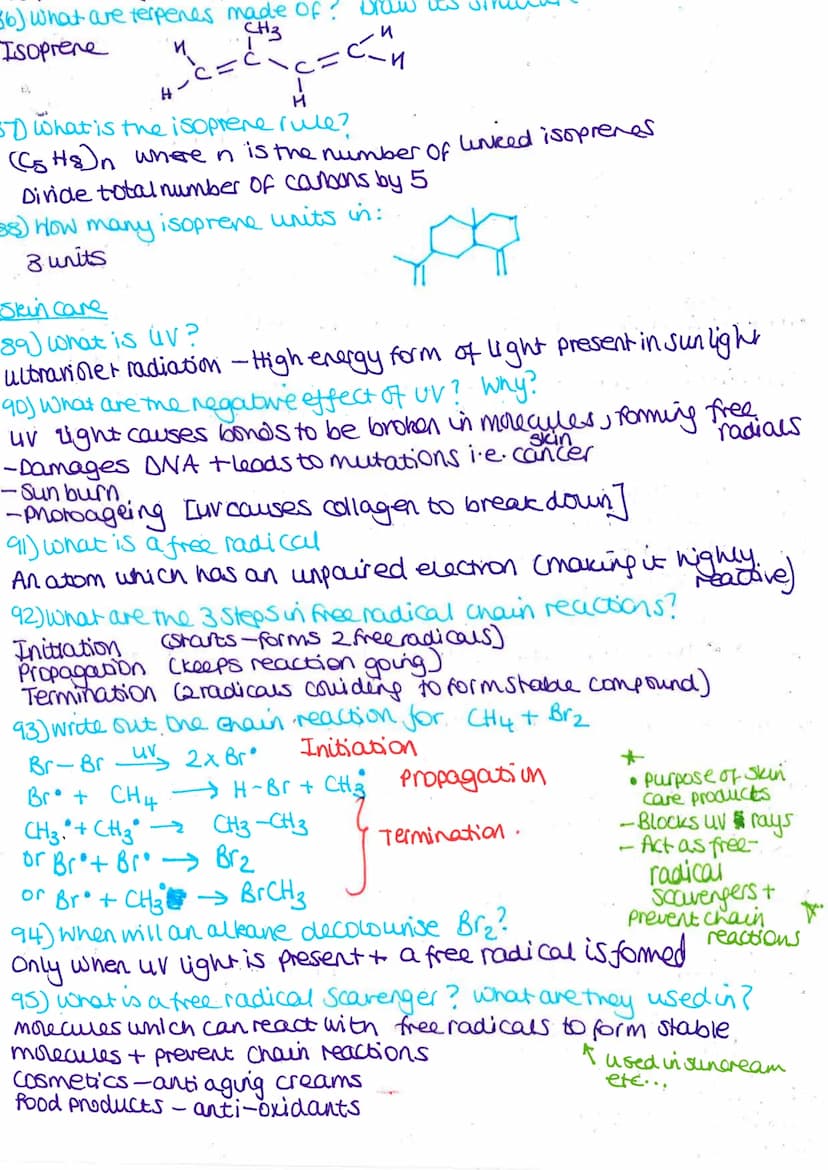 86) What are terpenes made of? Draw its
Isoprene
CH3
H
H
C = C
C = C
H
H
H
87) What is the isoprene rule?
(C5H8)n where n is the number of linked isoprenes
Divide total number of carbons by 5
88) How many isoprene units in:
3 units
Skin care
89) What is UV?
Ultraviolet radiation – High energy form of light present in sunlight
90) What are the negative effect of UV? Why?
UV light causes bonds to be broken in molecules, forming free radicals
- Damages DNA + leads to mutations i.e. skin cancer
- Sun burn
- Photoageing [UV causes collagen to break down]
91) What is a free radical
An atom which has an unpaired electron (making it highly reactive)
92) What are the 3 steps in free radical chain reactions?
Initiation (starts – forms 2 free radicals)
Propagation (keeps reaction going)
Termination (2 radicals colliding to form stable compound)
93) Write out the chain reaction for CH4 + Br2
Br–Br UV→ 2 x Br• Initiation
Br• + CH4 → H–Br + CH3• Propagation
CH3• + CH3• → CH3–CH3
or Br• + Br• → Br2 Termination.
or Br• + CH3• → BrCH3
* • purpose of skin
care products
– Blocks UV rays
– Act as free-
radical
scavengers +
prevent chain
reactions *
94) When will an alkane decolourise Br2?
Only when UV light is present + a free radical is formed
95) What is a free radical scavenger? What are they used in?
Molecules which can react with free radicals to form stable
molecules + prevent chain reactions
↑ used in suncream
etc...
Cosmetics – anti aging creams
Food products – anti-oxidants